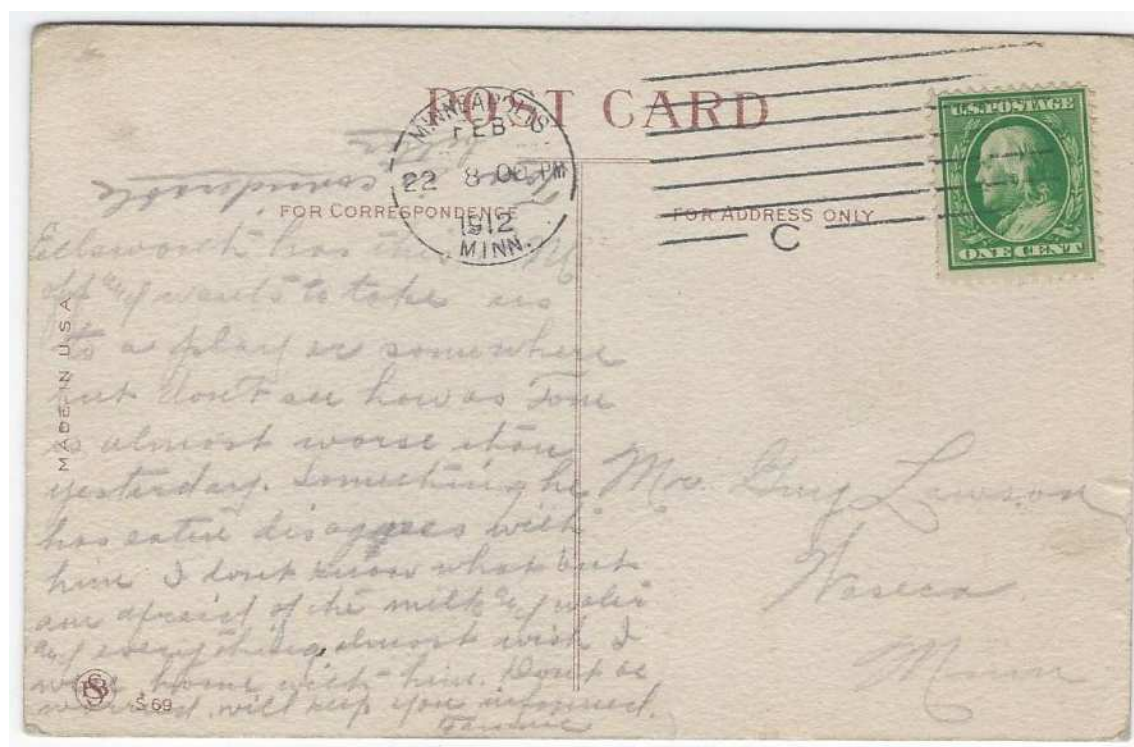 POST CARD
MINNEAPOLIS
FEB
22 8 00 PM
1912
MINN.
U.S. POSTAGE
ONE CENT
C
FOR CORRESPONDENCE
FOR ADDRESS ONLY
MADE IN U.S.A
Ellsworth has the
off & wants to take us
to a play or somewhere
but don't see how as Tom
is almost worse than
yesterday. Something he
has eaten disagrees with
him I don't know what but
am afraid of the milk & water
& everything almost wish I
were home with him. Don't be
worried will keep you informed.
Mr. Guy Lawson
Waseca
Minn
S 69